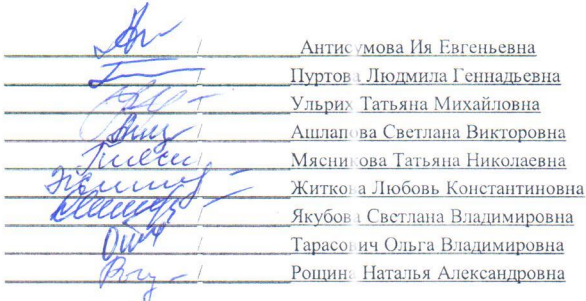 / Антисумова Ия Евгеньевна
/ Пуртова Людмила Геннадьевна
/ Ульрих Татьяна Михайловна
/ Ашлапова Светлана Викторовна
/ Мясникова Татьяна Николаевна
/ Житкова Любовь Константиновна
/ Якубова Светлана Владимировна
/ Тарасович Ольга Владимировна
/ Рощина Наталья Александровна